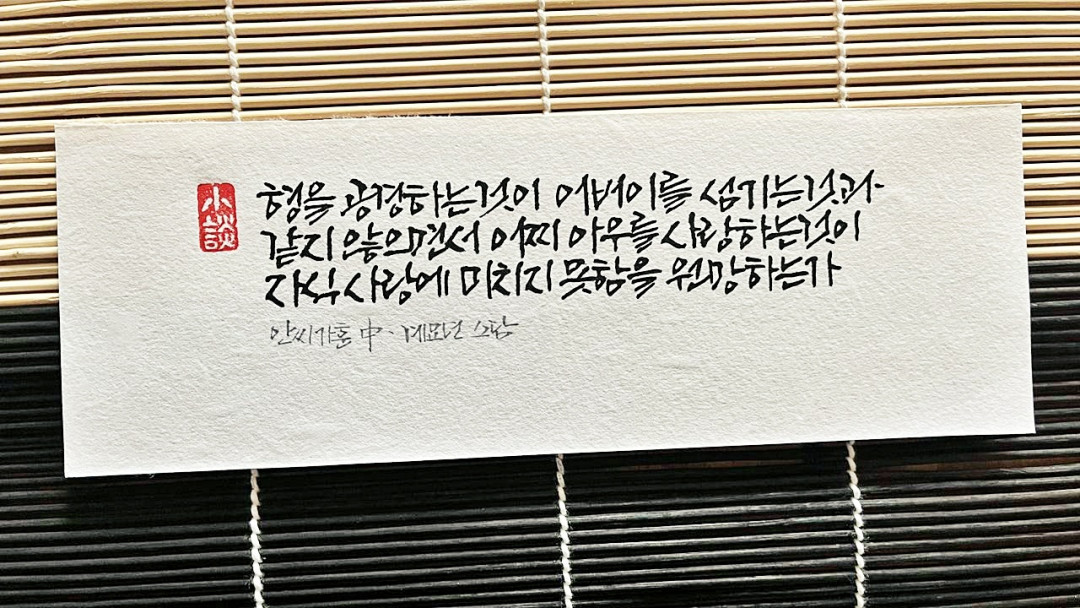 小談
형을 공경하는것이 어버이를 섬기는것과
같지 않으면서 어찌 아우를 사랑하는것이
자식 사랑에 미치지 못함을 원망하는가
안씨가훈 中. 계묘년 소담